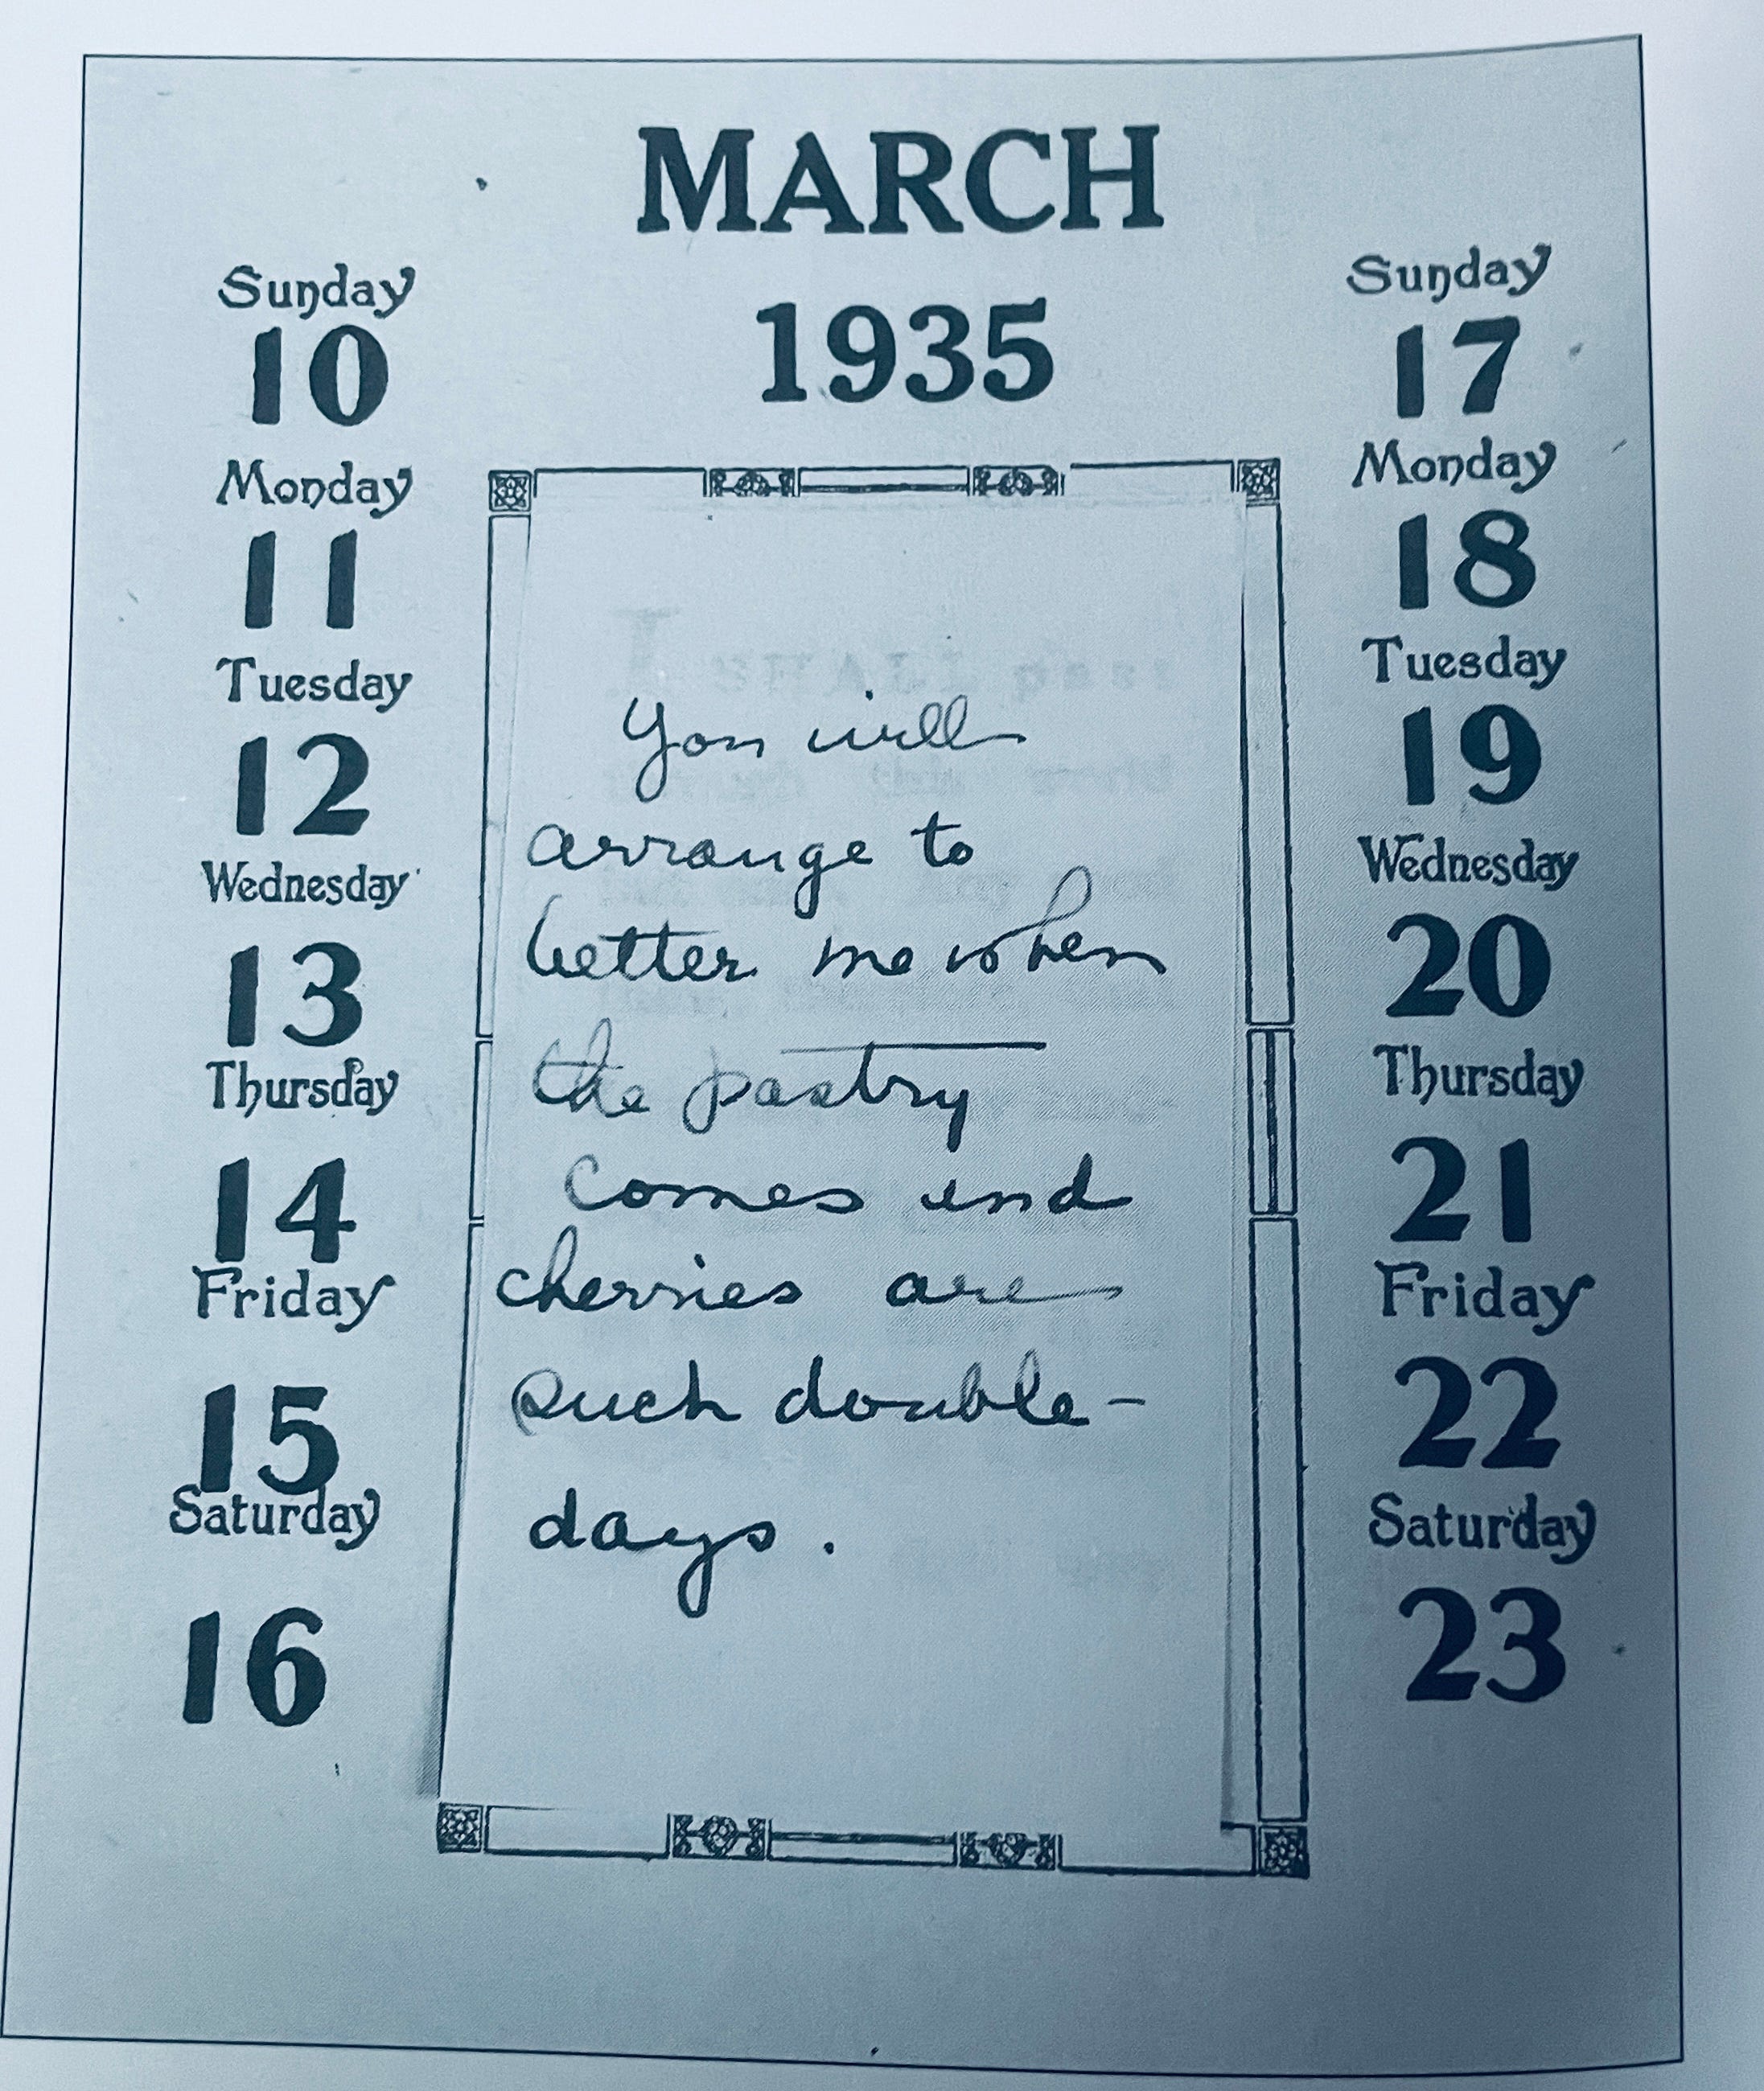 MARCH
1935
Sunday
10
Monday
11
Tuesday
12
Wednesday
13
Thursday
14
Friday
15
Saturday
16
You will
arrange to
better me when
the pastry
comes and
cherries are
such double-
days.
Sunday
17
Monday
18
Tuesday
19
Wednesday
20
Thursday
21
Friday
22
Saturday
23
I SHALL pass
through this world